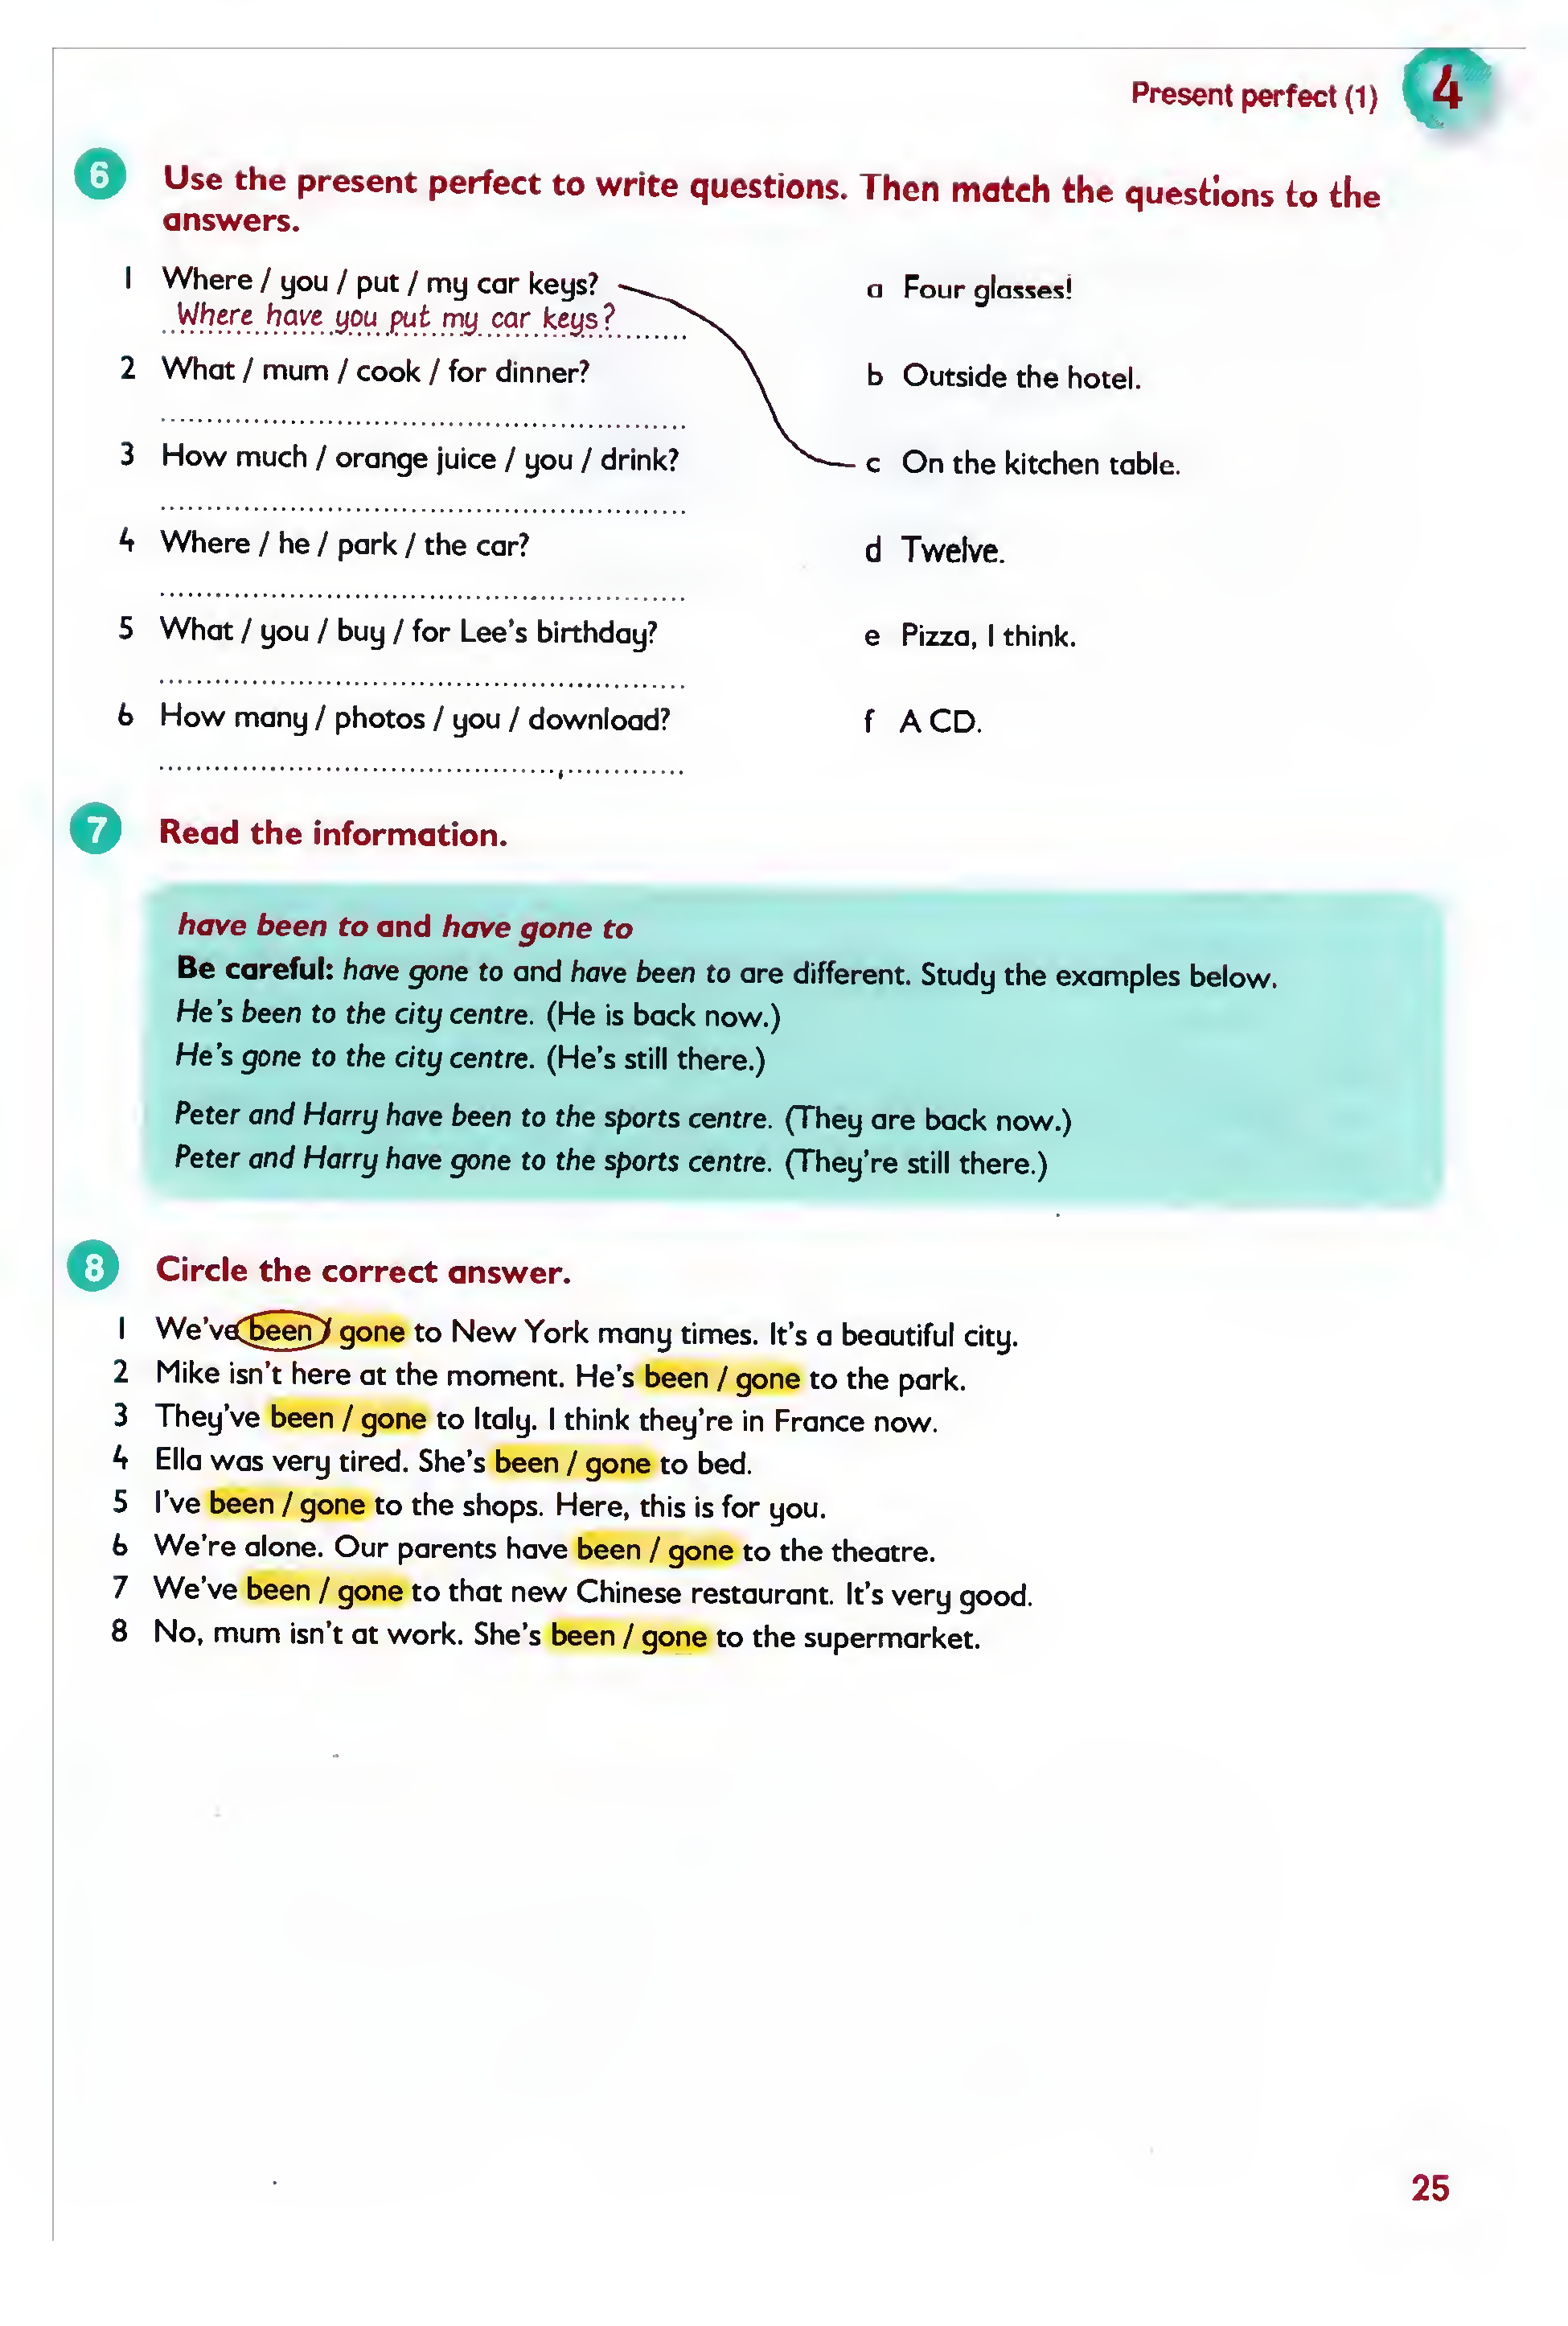 Present perfect (1) 4
6 Use the present perfect to write questions. Then match the questions to the
answers.
1 Where / you / put / my car keys?
Where have you put my car keys?
a Four glasses!
2 What / mum / cook / for dinner?
b Outside the hotel.
3 How much / orange juice / you / drink?
c On the kitchen table.
4 Where / he / park / the car?
d Twelve.
5 What / you / buy / for Lee's birthday?
e Pizza, I think.
6 How many / photos / you / download?
f A CD.
7 Read the information.
have been to and have gone to
Be careful: have gone to and have been to are different. Study the examples below.
He's been to the city centre. (He is back now.)
He's gone to the city centre. (He's still there.)
Peter and Harry have been to the sports centre. (They are back now.)
Peter and Harry have gone to the sports centre. (They're still there.)
8 Circle the correct answer.
1 We've been / gone to New York many times. It's a beautiful city.
2 Mike isn't here at the moment. He's been / gone to the park.
3 They've been / gone to Italy. I think they're in France now.
4 Ella was very tired. She's been / gone to bed.
5 I've been / gone to the shops. Here, this is for you.
6 We're alone. Our parents have been / gone to the theatre.
7 We've been / gone to that new Chinese restaurant. It's very good.
8 No, mum isn't at work. She's been / gone to the supermarket.
25